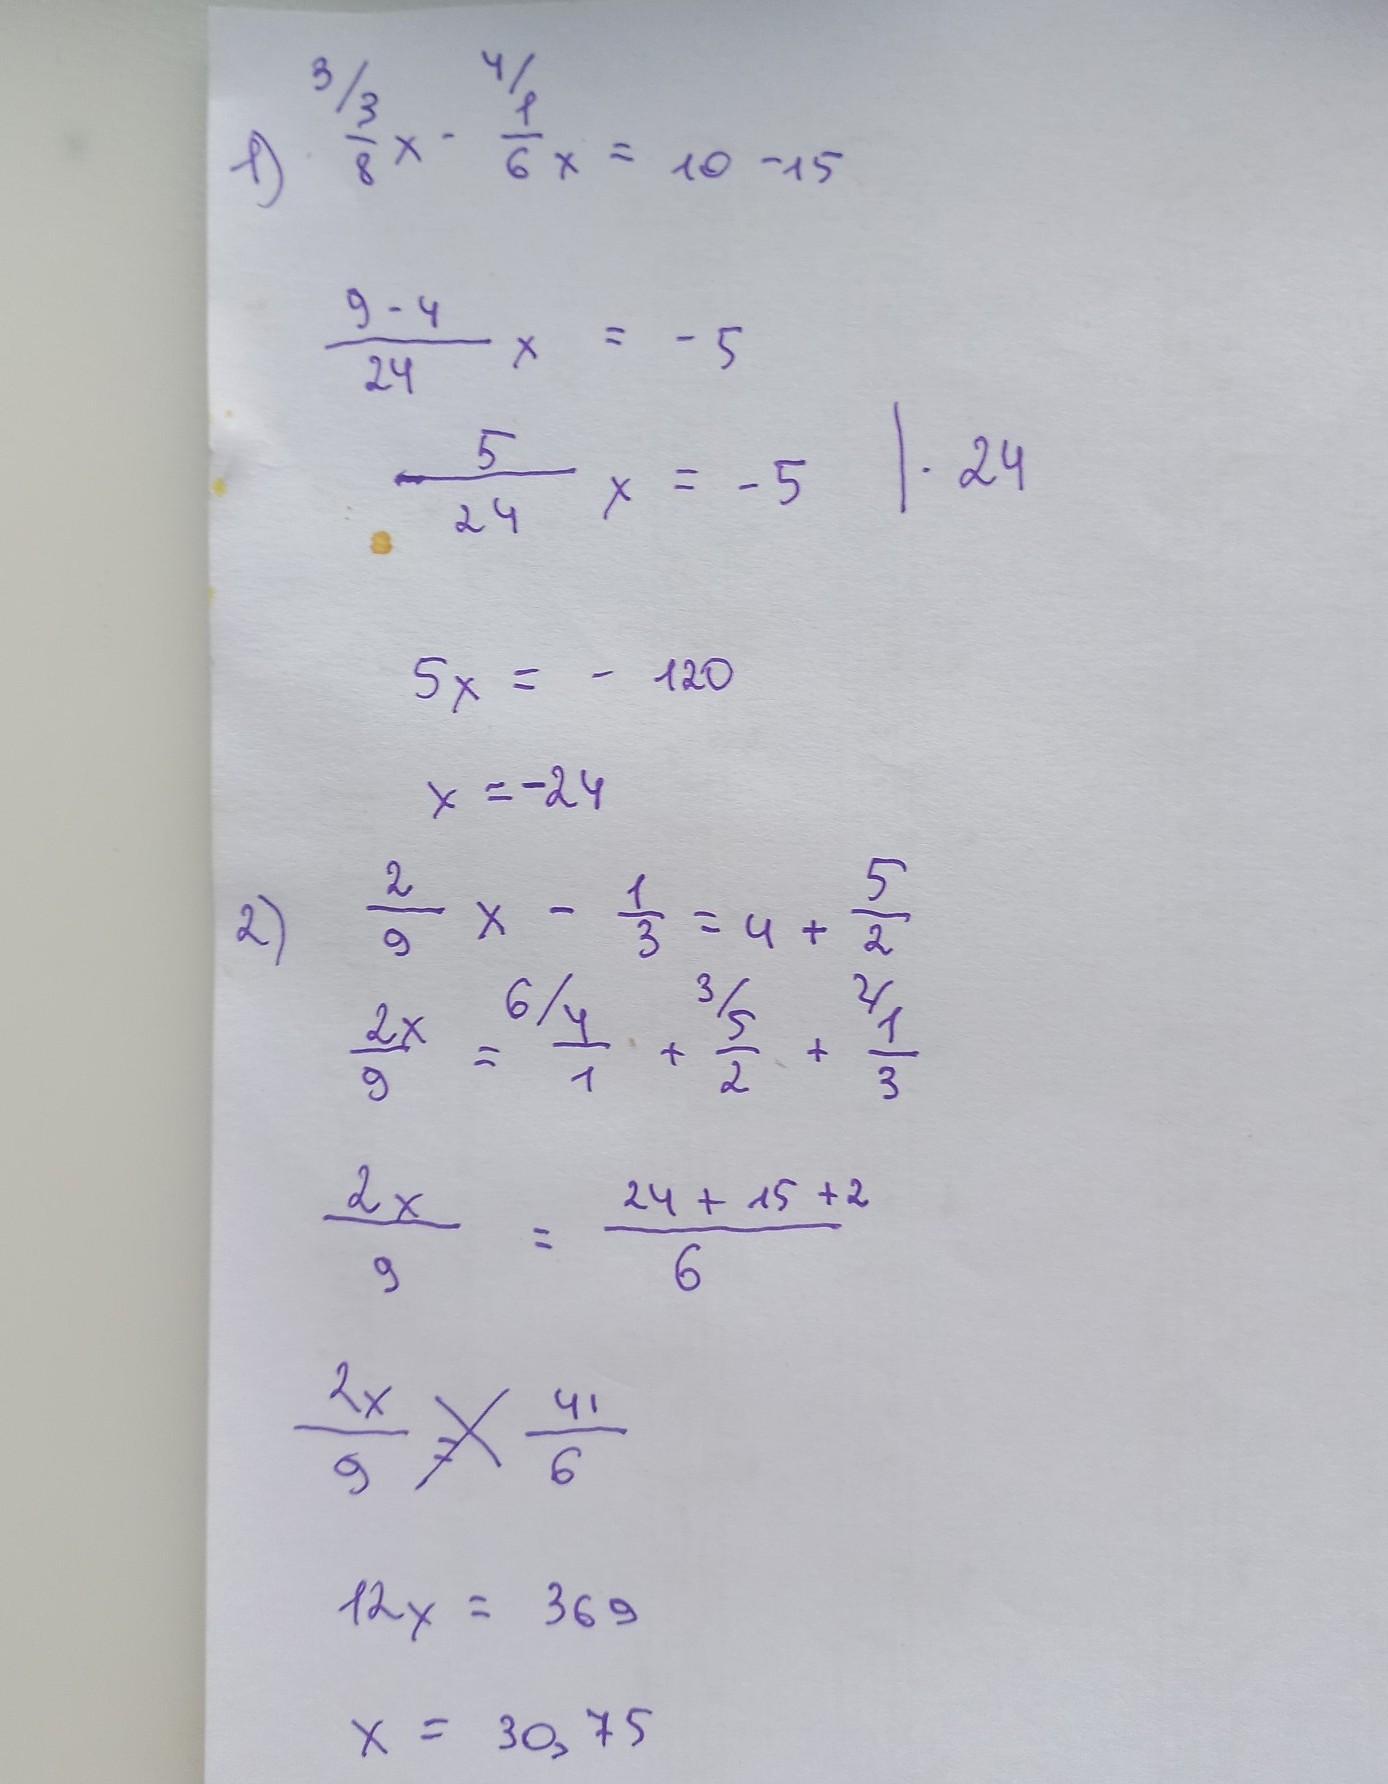 1) 3/ 3/8 x - 4/ 1/6 x = 10 - 15
9 - 4 / 24 x = - 5
5/24 x = - 5 | · 24
5x = - 120
x = -24
2) 2/9 x - 1/3 = 4 + 5/2
2x/9 = 6/ 4/1 + 3/ 5/2 + 2/ 1/3
2x/9 = 24 + 15 + 2 / 6
2x/9 = 41/6
12x = 369
x = 30,75